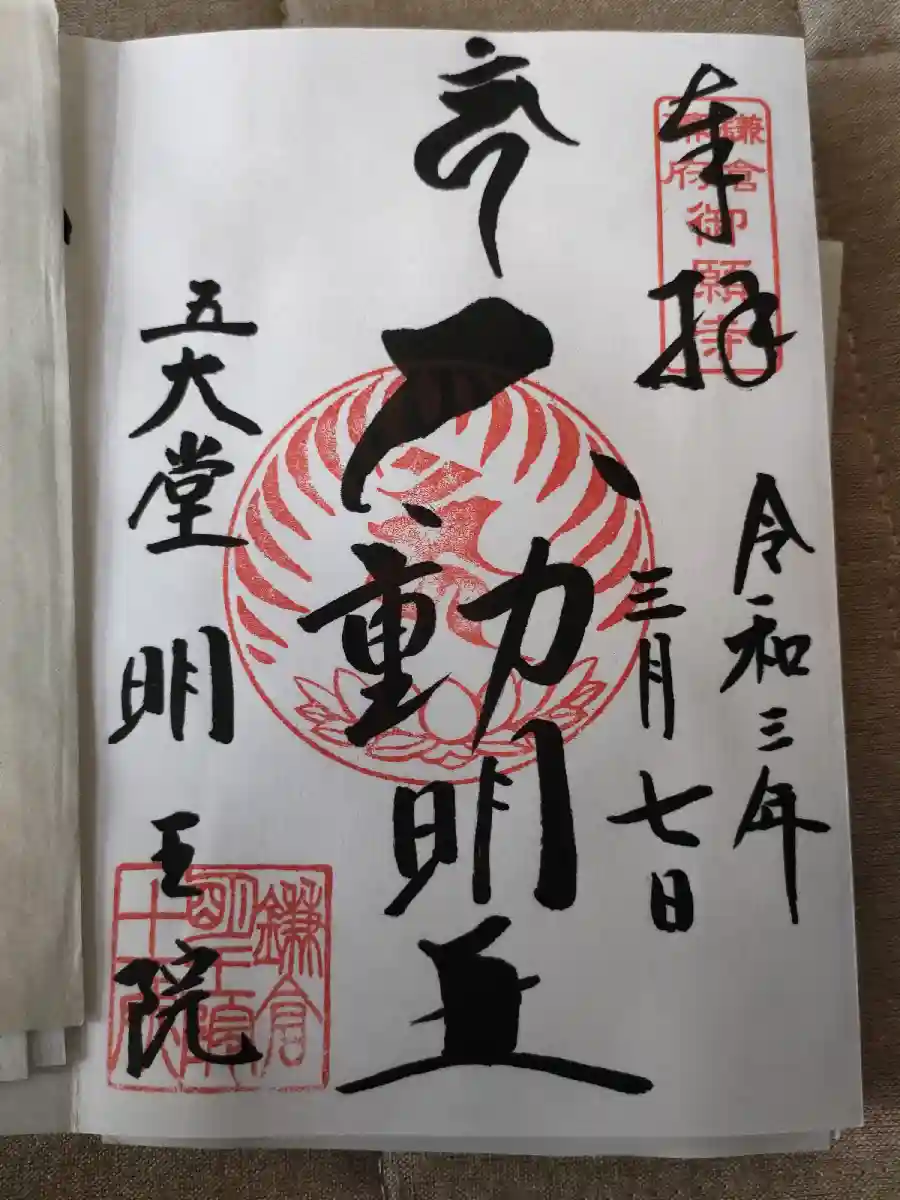 奉拝
鎌倉
幕府
御願寺
令和三年
三月七日
不動明王
五大堂 明王院
鎌倉
明王院